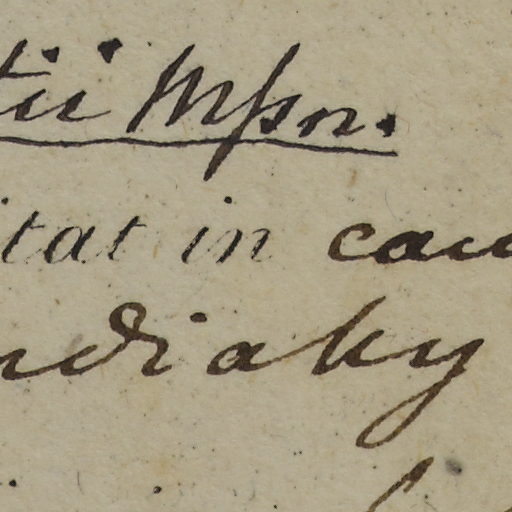 tii Mssn.
itat in cam
ndiaky